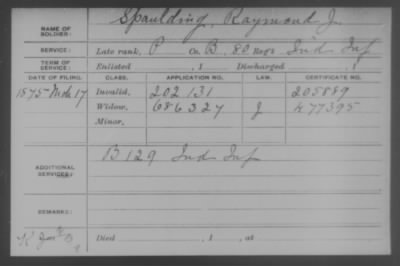 NAME OF SOLDIER: Spaulding, Raymond J.
SERVICE: Late rank, P Co. B, 80 Reg't Ind Inf
TERM OF SERVICE: Enlisted , 1 Discharged , 1
DATE OF FILING. CLASS. APPLICATION NO. LAW. CERTIFICATE NO.
1875 Mch 17 Invalid, 202 131 205889
Widow, 686 327 J 477395
Minor,
ADDITIONAL SERVICES: B 129 Ind Inf
REMARKS:
Died , 1 , at